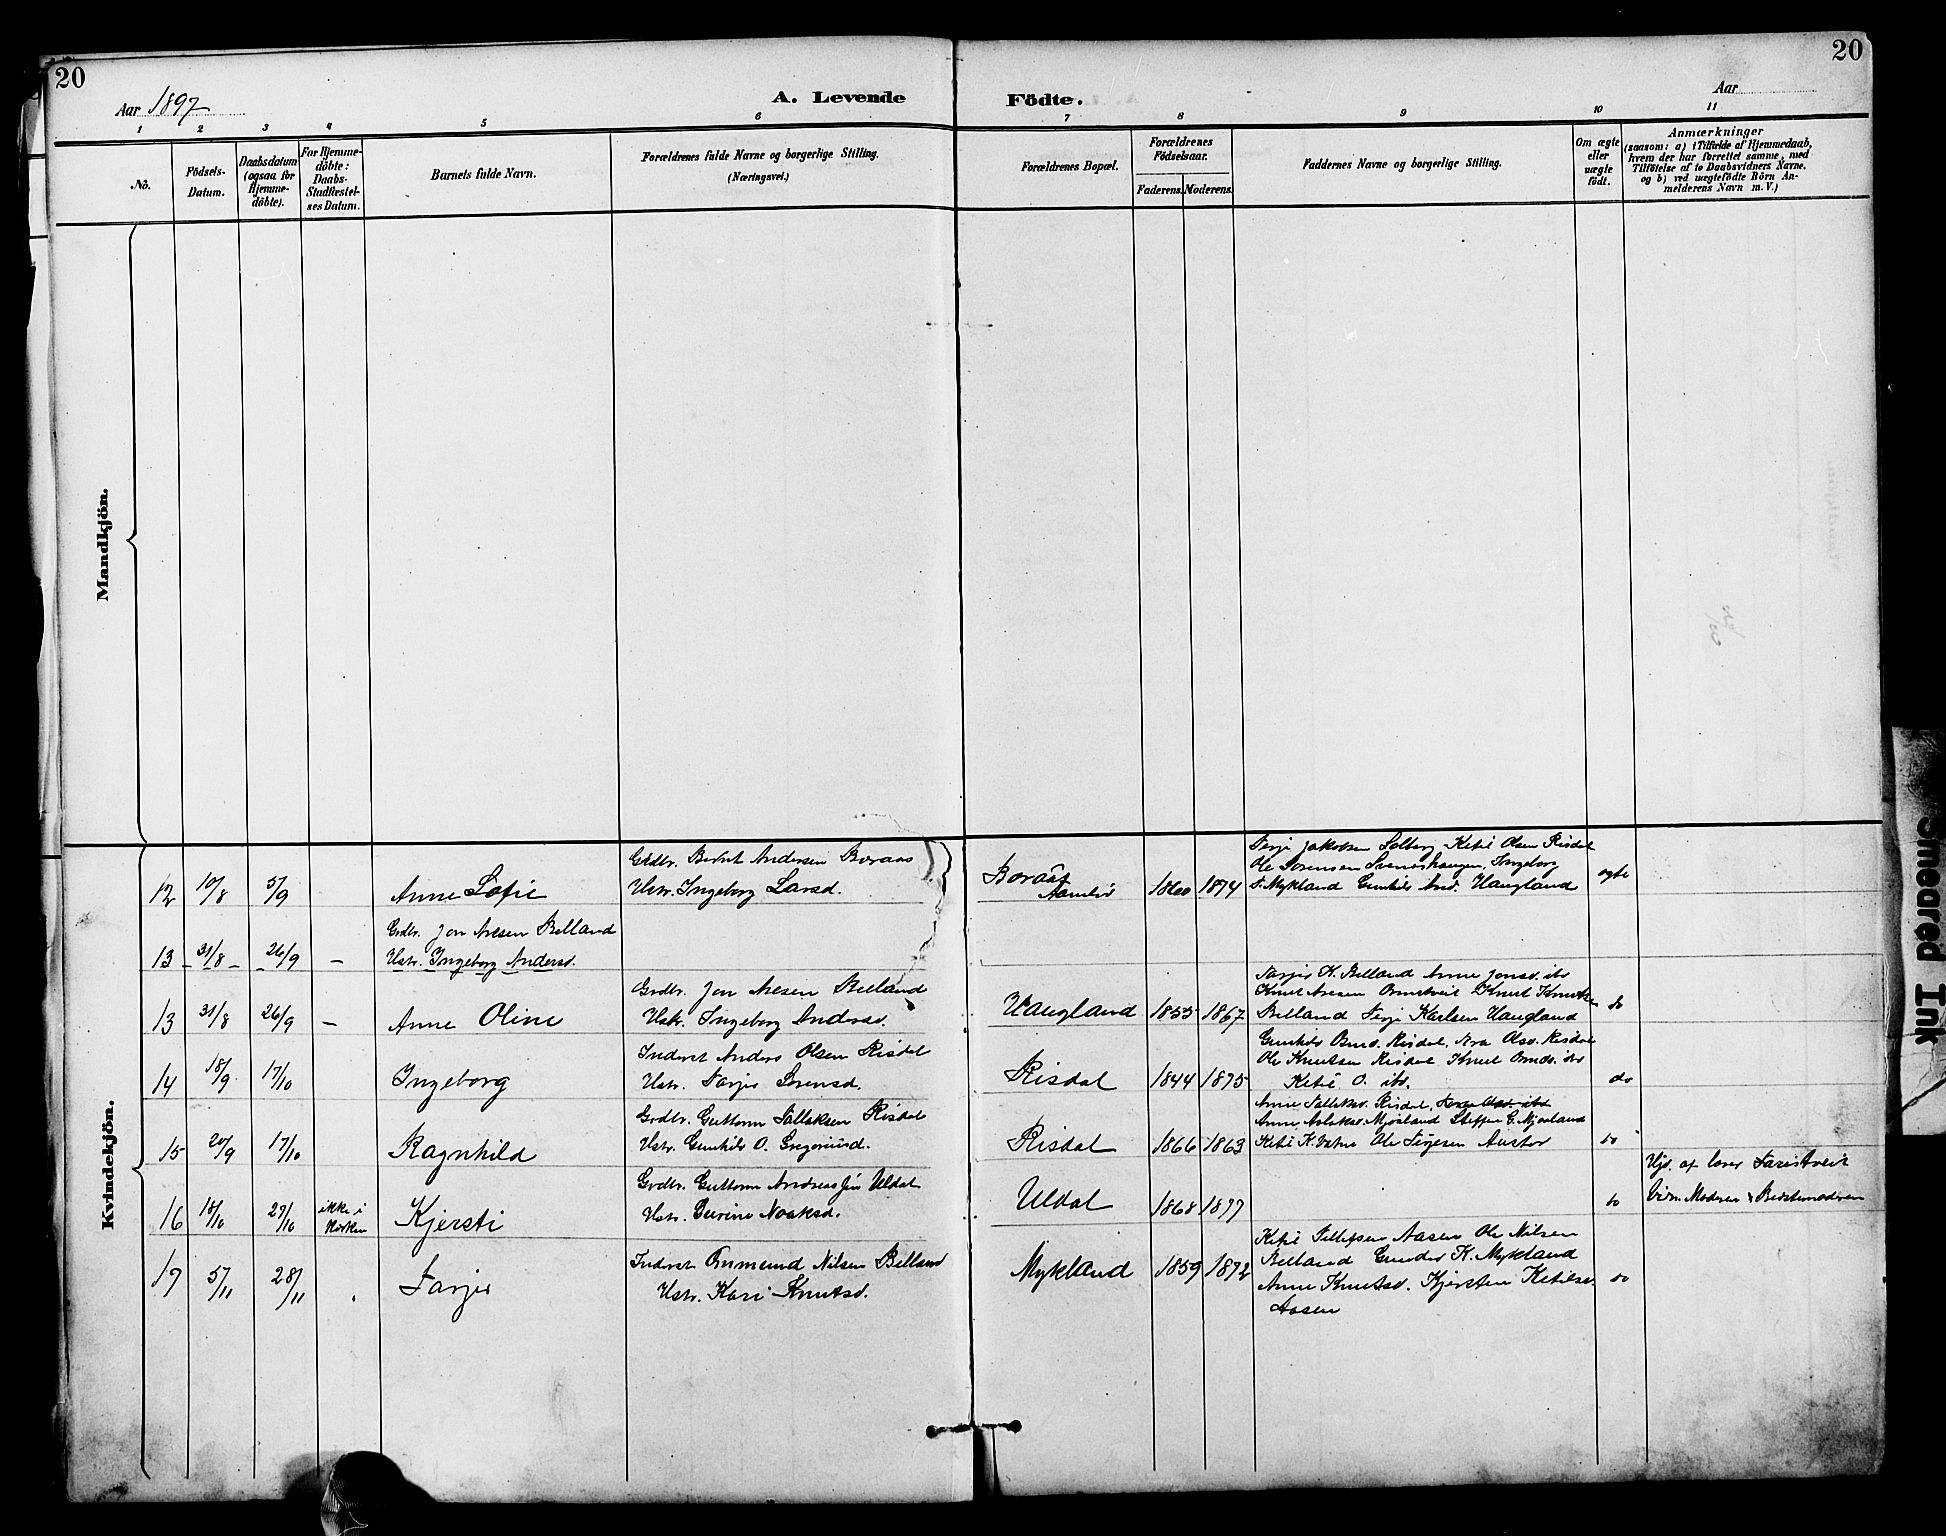 20
20
Aar 1897
A. Levende
Födte.
Aar
1
2
3
4
5
6
7
8
9
10
11
No.
Födsels-
Datum.
Daabsdatum
(ogsaa for
Hjemme-
döbte).
For Hjemme-
döbte:
Daabs-
Stadfæstel-
ses Datum.
Barnets fulde Navn.
Forældrenes fulde Navne og borgerlige Stilling.
(Næringsvei.)
Forældrenes Bopæl.
Forældrenes
Födselsaar.
Faderens. Moderens.
Faddernes Navne og borgerlige Stilling.
Om ægte
eller
uægte
födt.
Anmærkninger
(saasom: a) i Tilfælde af Hjemmedaab,
hvem der har forrettet samme, med
Tilföielse af to Daabsvidners Navne.
og b) ved uægtefödte Börn An-
melderens Navn m. V.)
Mandkjön.
Kvindekjön.
12 10/8 5/9 Anne Sofie
Grdbr. Berut Andersen Boraas
Hstr. Ingeborg Larsd.
Boraas
Aamlid
1860 1874
Terje Jakobsen Solberg Ketil Olsen Risdal
Ole Sorensen Svaneshaugen, Ingeborg
T. Mykland Gunhild And. Haugland
ægte
13 31/8 26/9 –
Grdbr. Jon Aresen Belland
Hstr. Ingeborg Andersd.
13 31/8 26/9 – Anne Oline
Grdbr. Jon Aresen Belland
Hstr. Ingeborg Andersd.
Haugland
1855 1867
Tarjer K. Belland Anne Jonsd. ibd
Knut Aresen Ormtveit Knut Knutsen
Belland Terje Karlsen Haugland
do
14 18/9 17/10 Ingeborg
Inderst Anders Olsen Risdal
Hstr. Tarjer Sorensd.
Risdal
1844 1875
Gunhild Omd. Risdal, Ara Olsd. Risdal
Ole Knutsen Risdal Knut Omds. ibd
Ketil O. ibd.
do
15 20/9 17/10 Ragnhild
Grdbr. Guttorm Tallaksen Risdal
Hstr. Gunhild O. Gregoriusd.
Risdal
1866 1863
Anne Tallaksd. Risdal,
Anne Aslaksd. Mjoaland Steffen G. Mjoaland
Ketil K. Vatne Ole Terjesen Austad
do
16 15/10 27/10 ikke i
Kirken
Kjersti
Grdbr. Guttorm Andreassen Uldal
Hstr. Gurine Noaksd.
Uldal
1868 1877
do
Hjd. af lærer Faristveit
Vidn. Modren & Bedstemodren
17 5/11 28/11 Tarjer
Inderst Ommund Nilsen Belland
Hstr. Kari Knutsd.
Mykland
1859 1872
Ketil Tellefsen Aasen Ole Nilsen
Belland Gunder K. Mykland
Anne Knutsd. Kjersten Ketilsd
Aasen
do
Smeared Ink